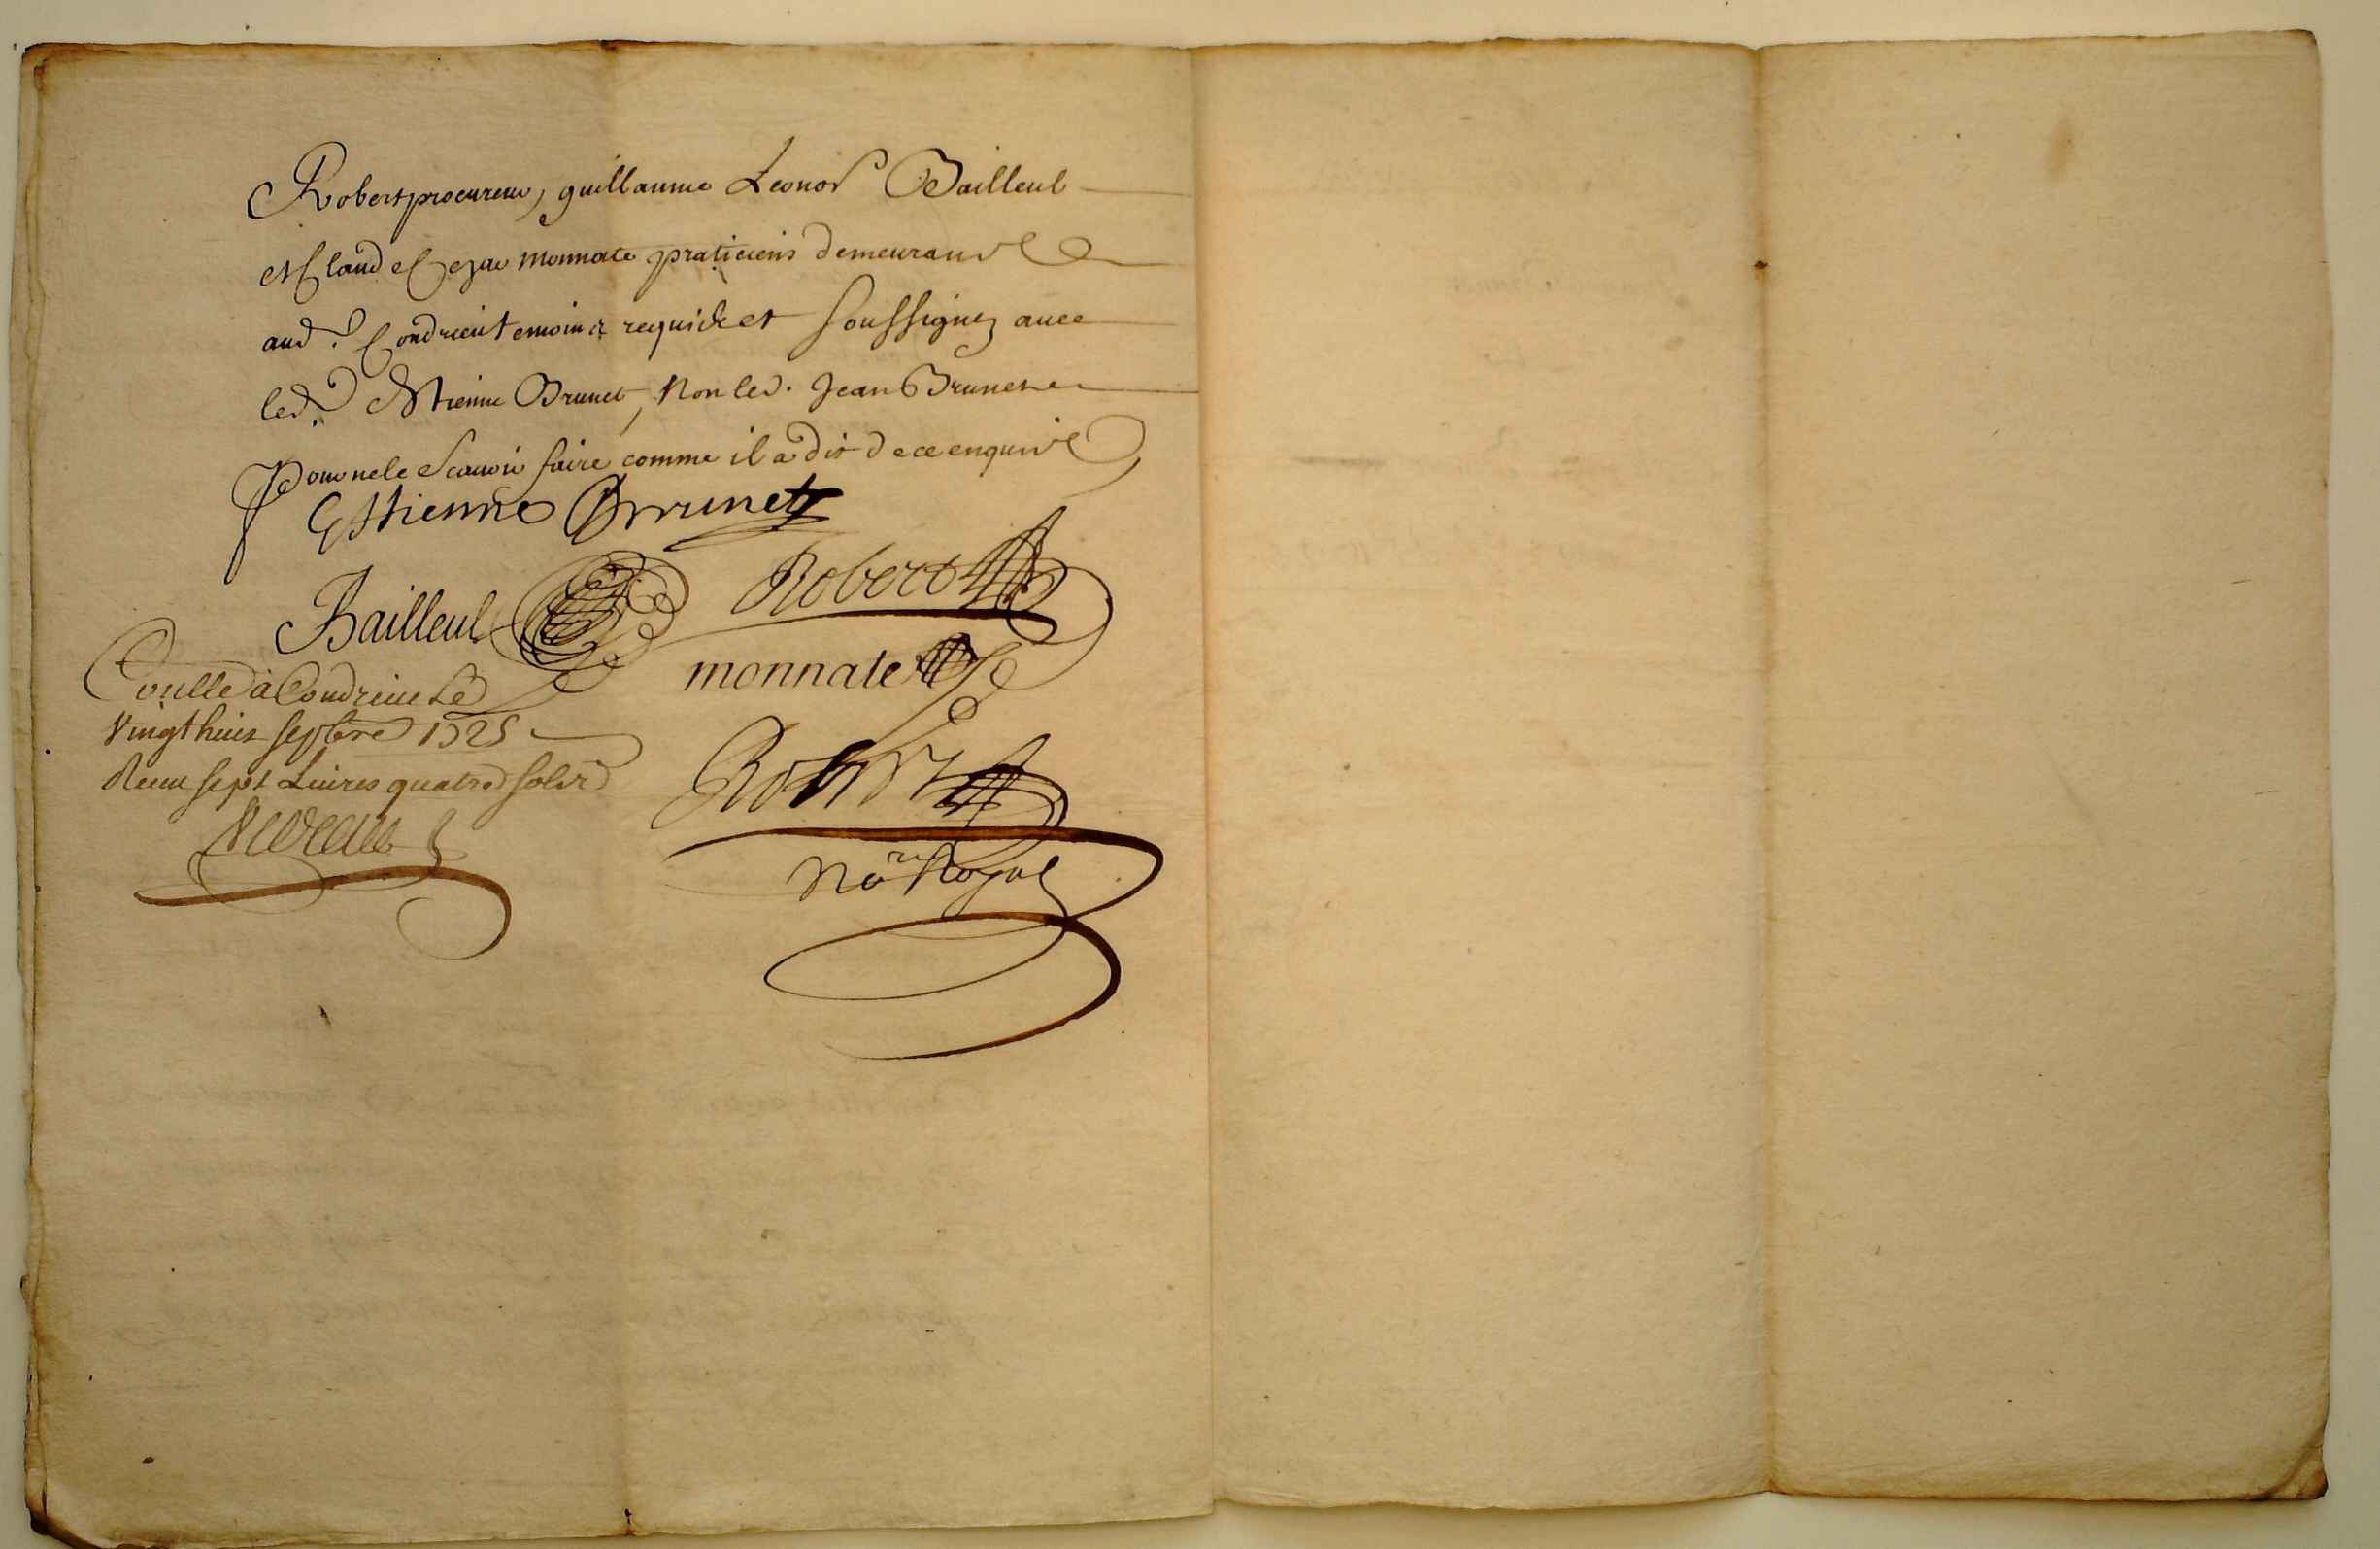 Robert procureur, guillaume Leonor Bailleul
et Claude Cezar monnate praticiens demeurans
aud.t Condrieu temoins requis et soussignez avec
led.t Estienne Brunet, Non led. Jean Brunet
Pour ne le scavoir faire comme il a dit de ce enquis
Estienne Brunet
Bailleul Robert
monnate
Con.llé a Condrieu Le
Vingt huit sepbre 1725
Receu sept Livres quatre sols
Robert
No.re Royal